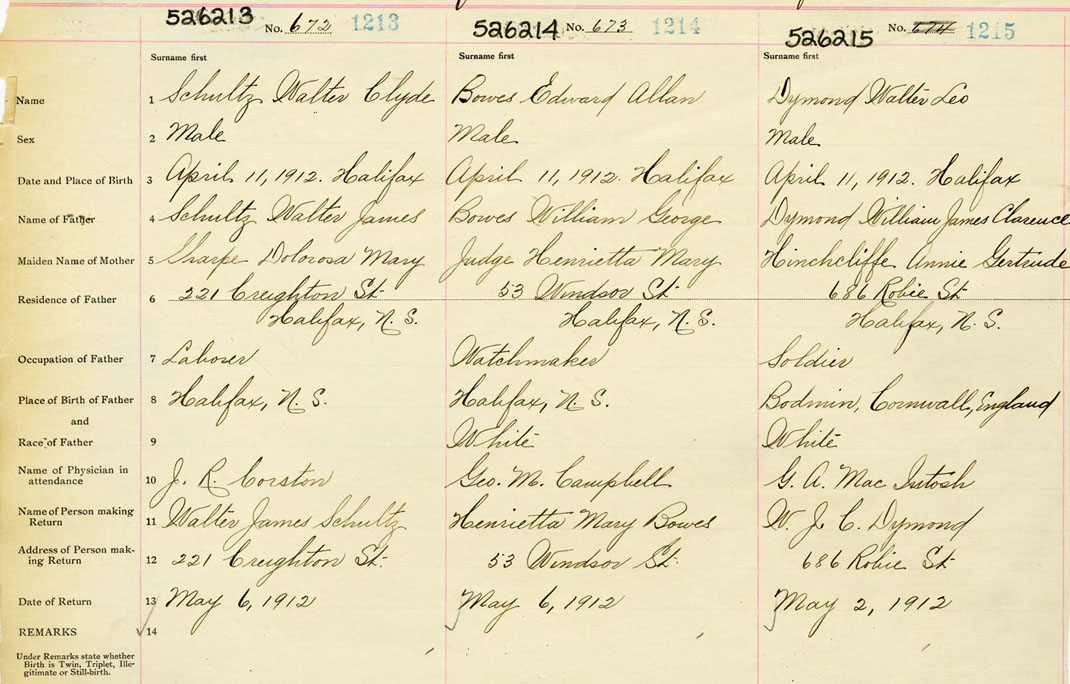 526213 No. 672 1213 526214 No. 673 1214 526215 No. 674 1215
Surname first Surname first Surname first
Name 1 Schultz Walter Clyde Bowes Edward Allan Dymond Walter Leo
Sex 2 Male Male Male
Date and Place of Birth 3 April 11, 1912. Halifax April 11, 1912. Halifax April 11, 1912. Halifax
Name of Father 4 Schultz Walter James Bowes William George Dymond William James Clarence
Maiden Name of Mother 5 Sharpe Dolorosa Mary Judge Henrietta Mary Hinchcliffe Annie Gertrude
Residence of Father 6 221 Creighton St. 53 Windsor St. 686 Robie St.
Halifax, N. S. Halifax, N. S. Halifax, N. S.
Occupation of Father 7 Laborer Watchmaker Soldier
Place of Birth of Father 8 Halifax, N. S. Halifax, N. S. Bodmin, Cornwall, England
and
Race of Father 9 White White
Name of Physician in
attendance 10 J. R. Corston Geo. M. Campbell G. A. Mac Intosh
Name of Person making
Return 11 Walter James Schultz Henrietta Mary Bowes W. J. C. Dymond
Address of Person mak-
ing Return 12 221 Creighton St. 53 Windsor St. 686 Robie St.
Date of Return 13 May 6, 1912 May 6, 1912 May 2, 1912
REMARKS 14
Under Remarks state whether
Birth is Twin, Triplet, Ille-
gitimate or Still-birth.